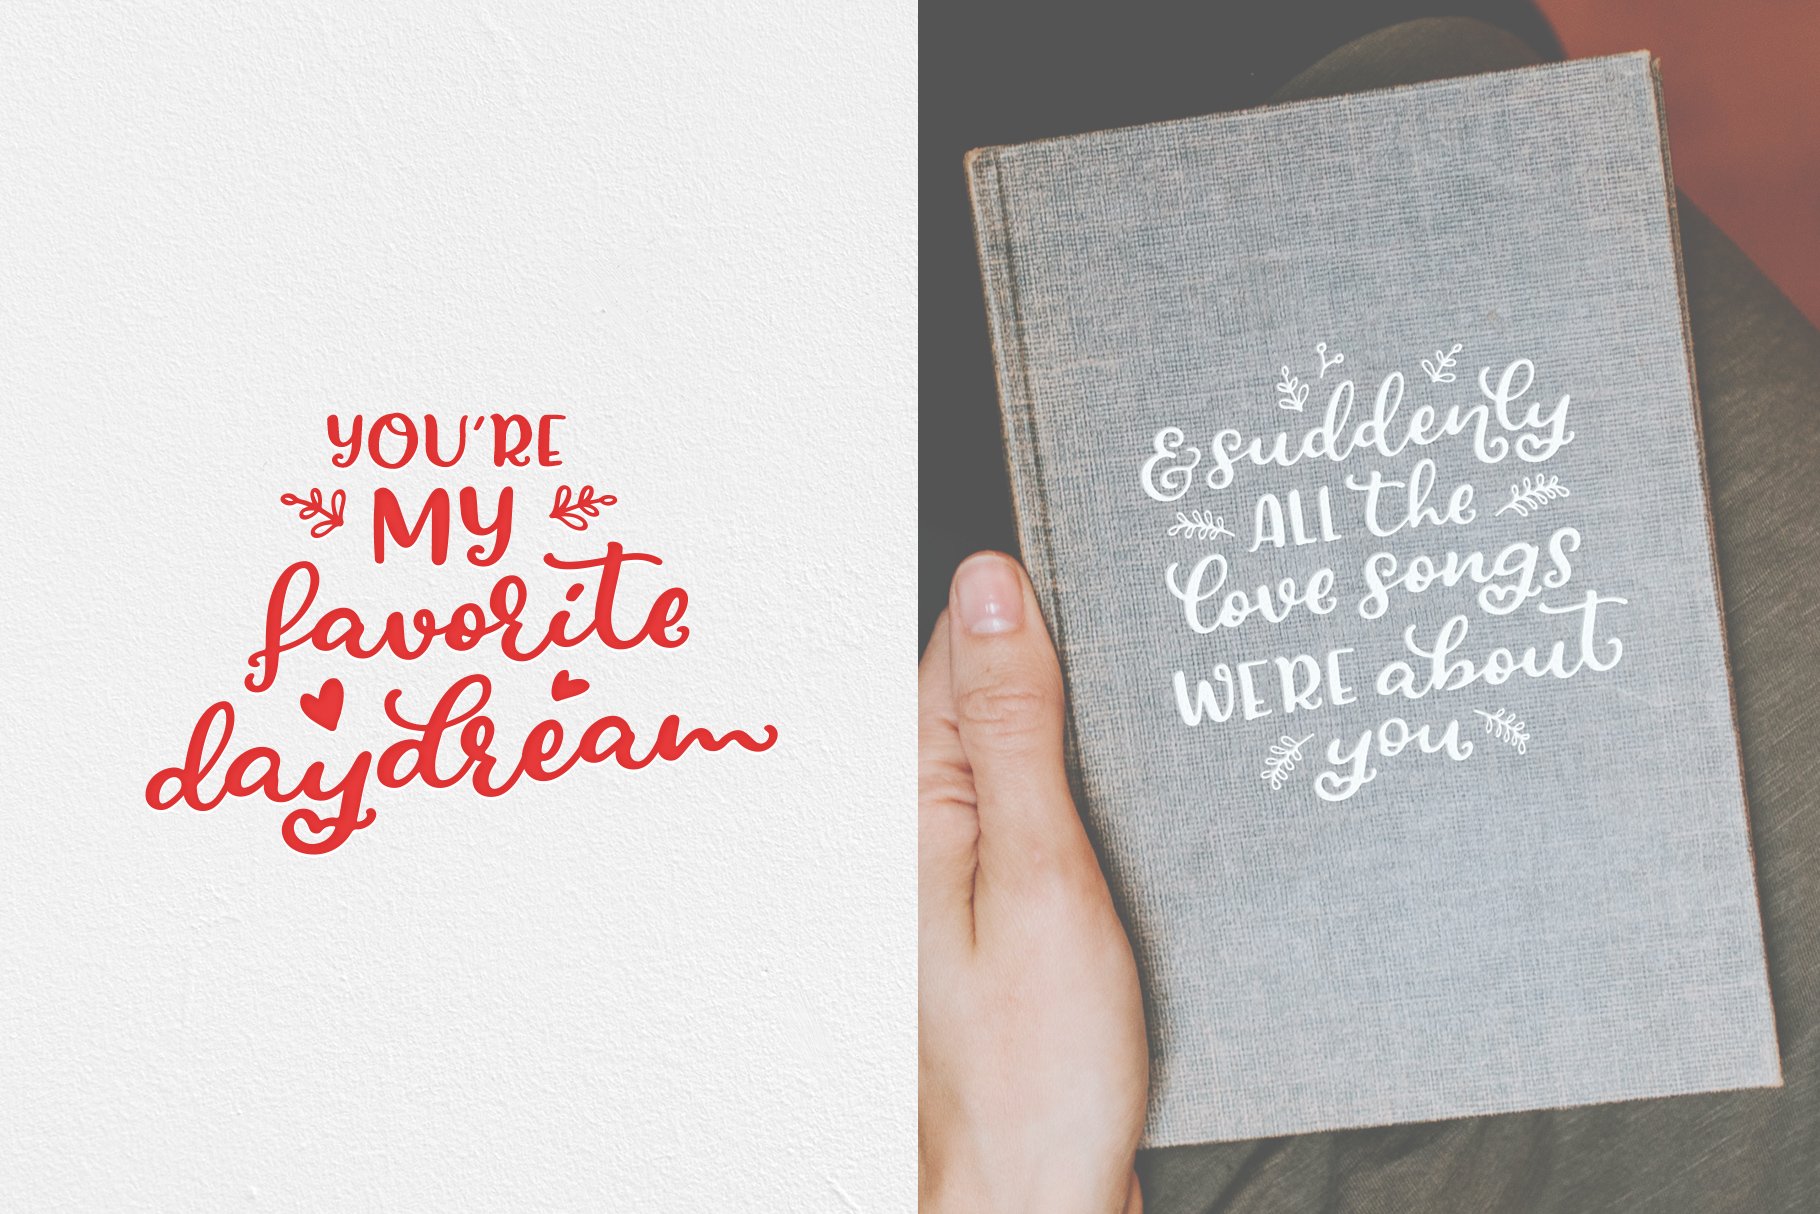 YOU'RE
MY
favorite
daydream
& suddenly
ALL the
love songs
WERE about
you